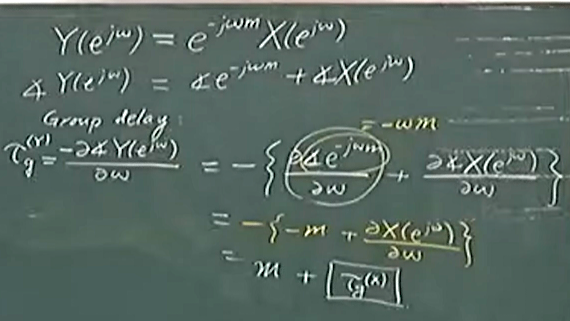 Y(e^{jω}) = e^{-jωm} X(e^{jω})
∡ Y(e^{jω}) = ∡e^{-jωm} + ∡X(e^{jω})
Group delay:
= -ωm
τ_g^{(Y)} = -∂∡Y(e^{jω})/∂ω = -{ ∂∡e^{-jωm}/∂ω + ∂∡X(e^{jω})/∂ω }
= -{-m + ∂X(e^{jω})/∂ω }
= m + τ_g^{(X)}